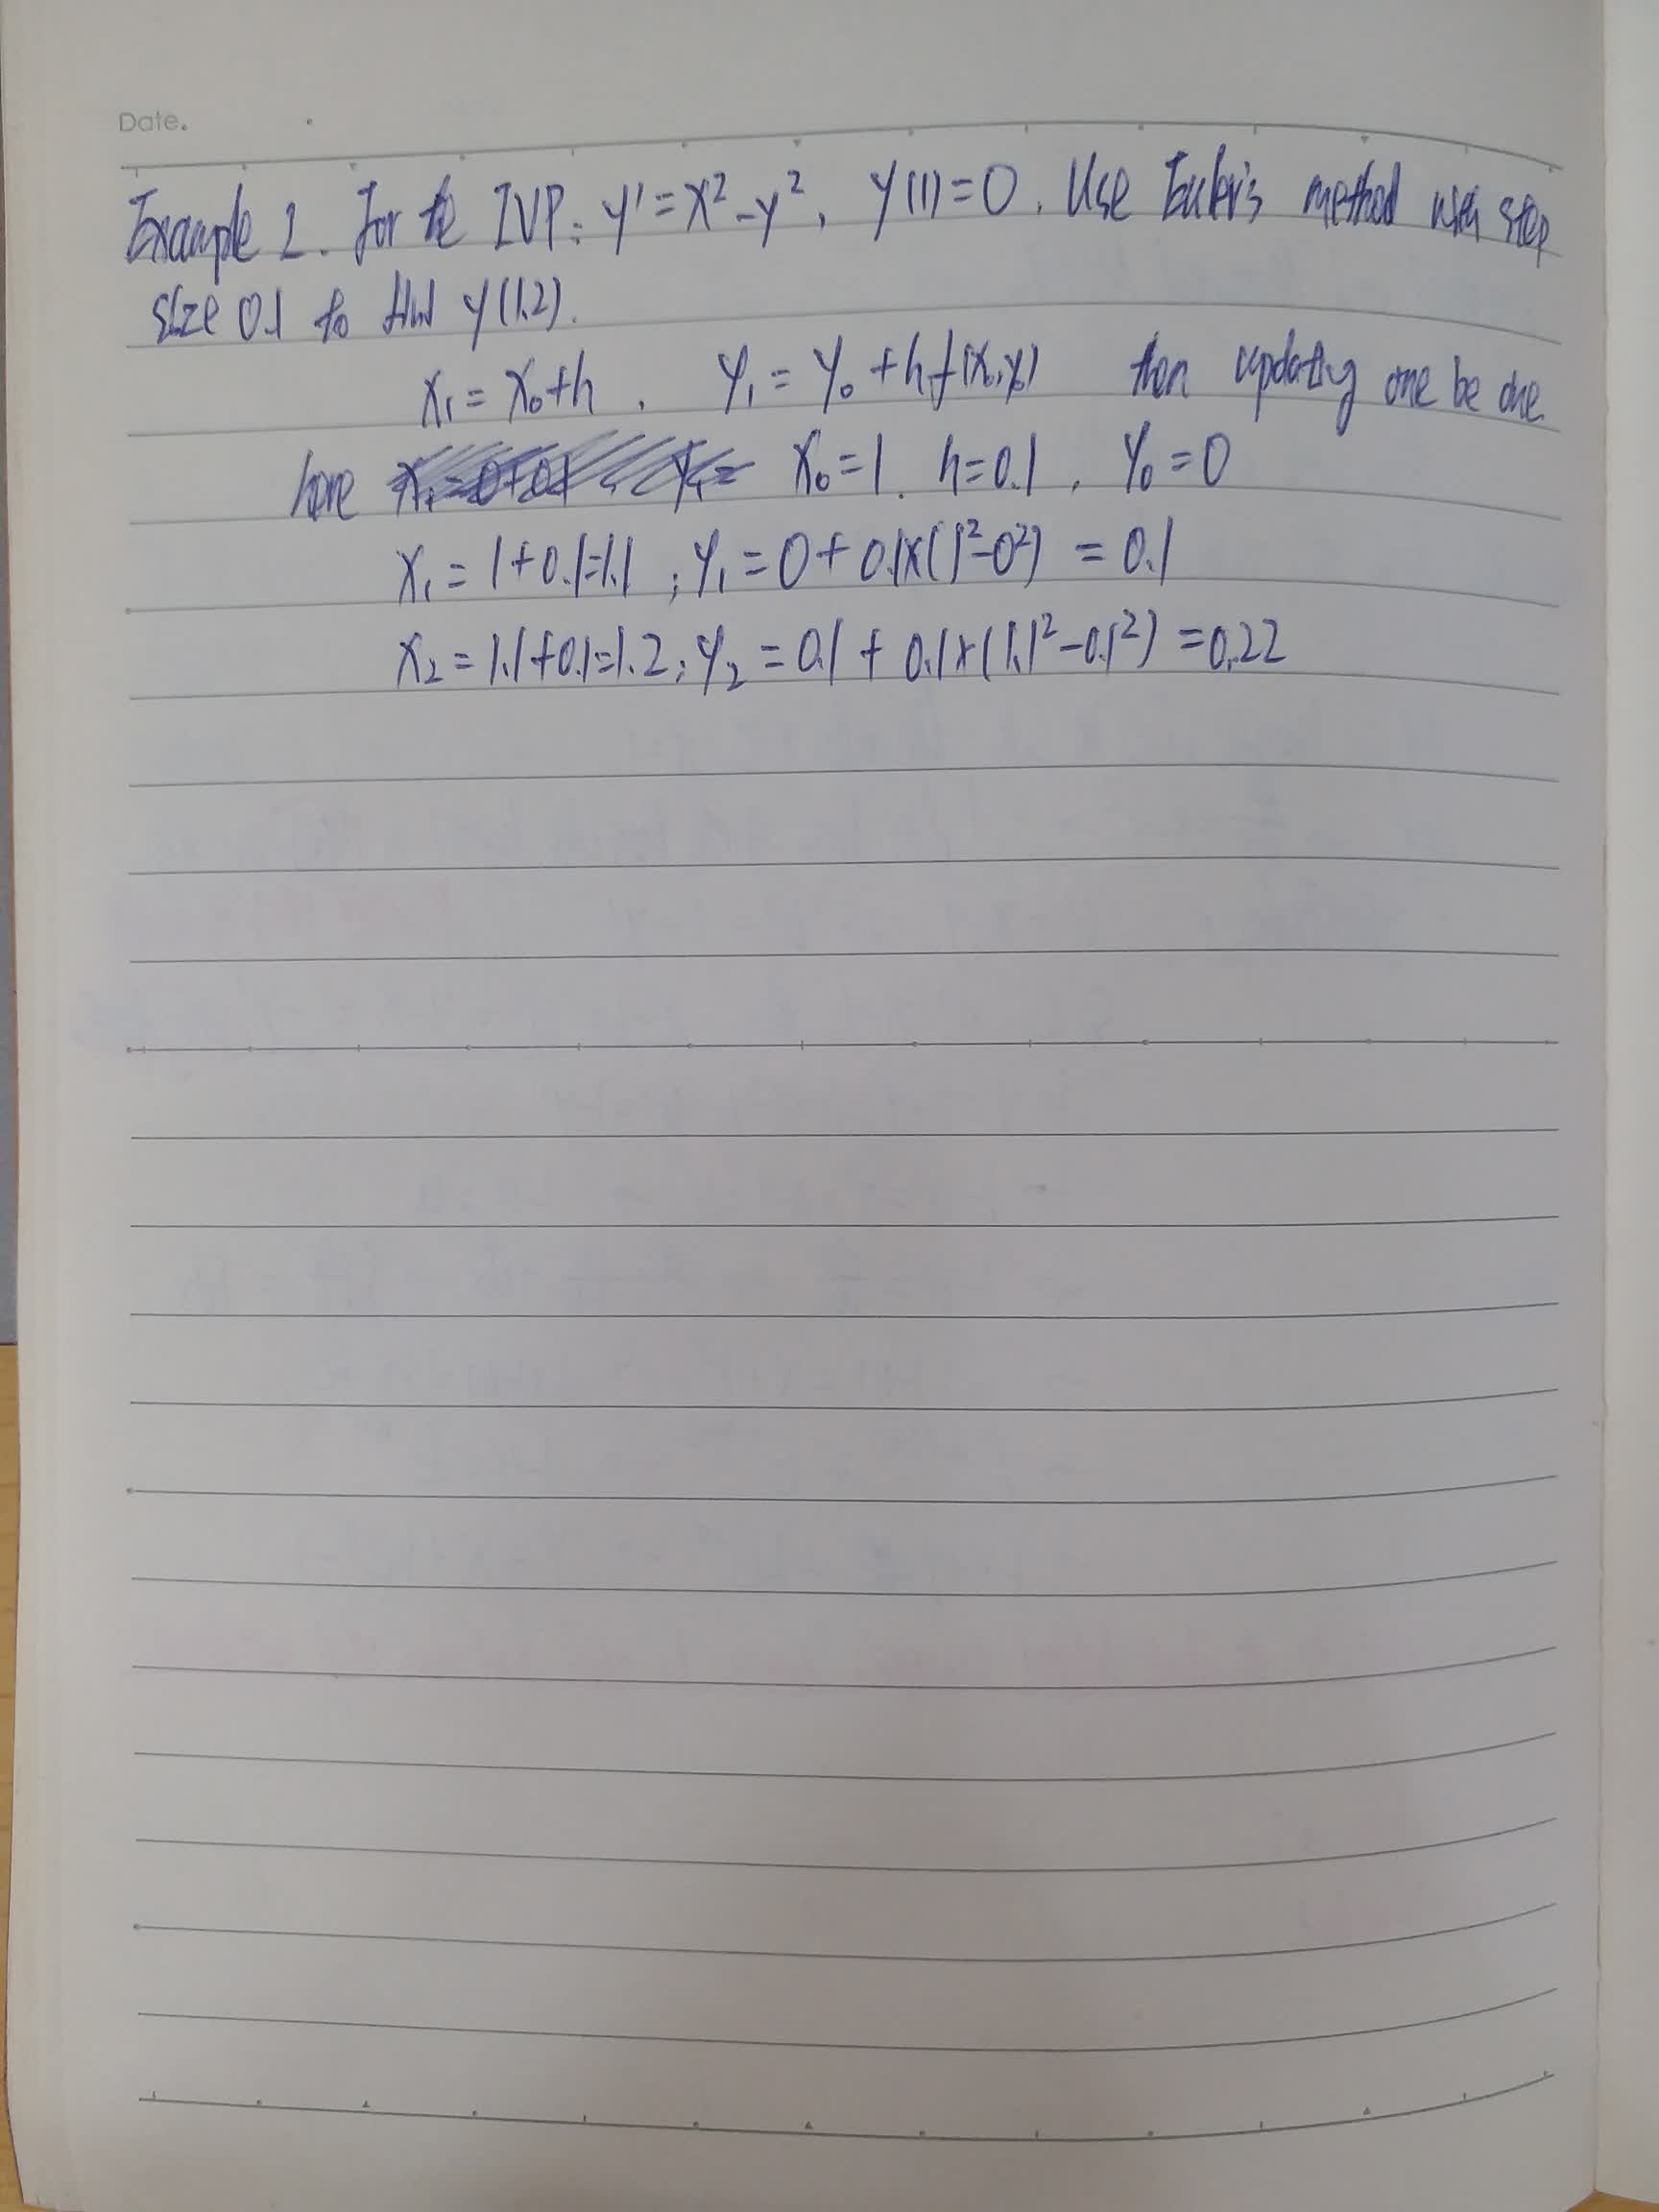 Date.
Example 2. For the IVP: y' = x² - y², y(1) = 0. Use Euler's method with step
size 0.1 to find y(1.2).
x₁ = x₀ + h, y₁ = y₀ + h f(x₀, y₀) then updating one be one
here x₀ = 1, h = 0.1, y₀ = 0
x₁ = 1 + 0.1 = 1.1; y₁ = 0 + 0.1 × (1² - 0²) = 0.1
x₂ = 1.1 + 0.1 = 1.2; y₂ = 0.1 + 0.1 × (1.1² - 0.1²) = 0.22